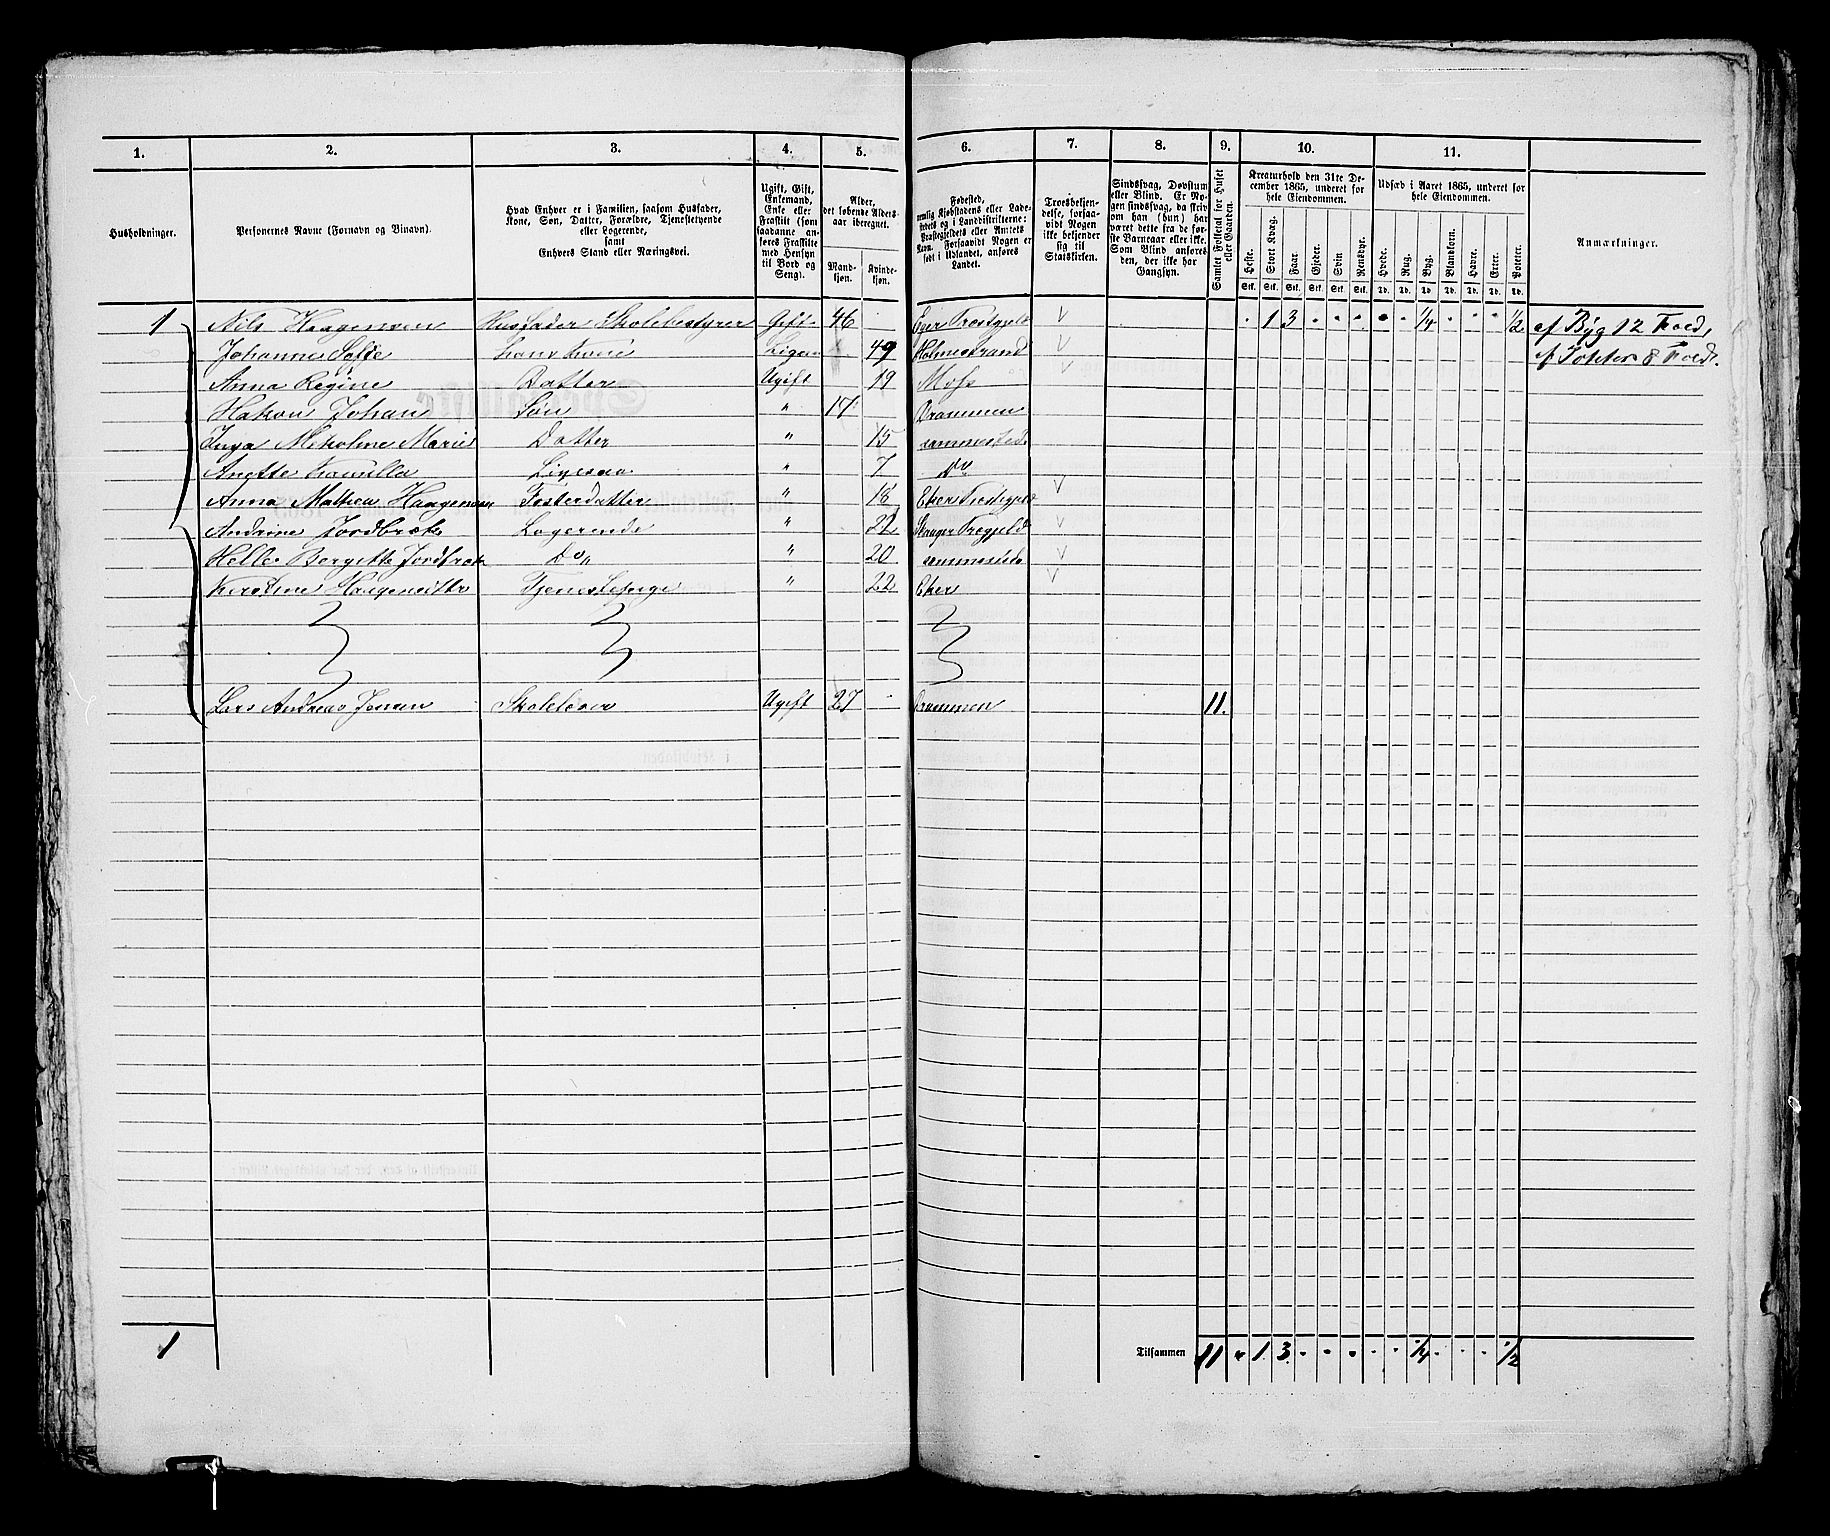 1. 2. 3. 4. 5. 6. 7. 8. 9. 10. 11.
Husholdninger.
Personernes Navne (Fornavn og Binavn).
Hvad Enhver er i Familien, saasom Husfader,
Kone, Søn, Datter, Forældre, Tjenestetyende
eller Logerende,
samt
Enhvers Stand eller Næringsvei.
Ugift, Gift,
Enkemand,
Enke eller
Fraskilt (som
saadanne an-
føres Fraskilte
med Hensyn
til Bord og
Seng).
Alder,
det løbende Alders-
aar iberegnet.
Mand-
kjøn.
Kvinde-
kjøn.
Fødested,
nemlig Kjøbstadens eller Lade-
stedets og i Landdistrikterne:
Præstegjeldets eller Amtets
Navn. Forsaavidt Nogen er
født i Udlandet, anføres
Landet.
Troesbekjen-
delse, forsaa-
vidt Nogen
ikke bekjender
sig til
Statskirken.
Sindssvag, Døvstum
eller Blind. Er No-
gen sindssvag, da skriv
om han (hun) har
været dette fra de før-
ste Barneaar eller ikke.
Som Blind ansøres
den, der ikke har
Gangsyn.
Samlet Folketal for Huset
eller Gaarden.
Kreaturhold den 31te De-
cember 1865, underet for
hele Eiendommen.
Heste. Stort Kvæg. Faar. Gjeder. Svin. Rensdyr.
Stk. Stk. Stk. Stk. Stk. Stk.
Udsæd i Aaret 1865, underet for
hele Eiendommen.
Hvede. Rug. Byg. Blandkorn. Havre. Erter. Poteter.
Td. Td. Td. Td. Td. Td. Td.
Anmærkninger.
1 Nils Haagensen Husfader Skolebestyrer Gift 46 Eger Præstgjeld 1 3 1/4 1/2 af Byg 12 Fold,
Johanne Sofie hans Kone Ligesaa 49 Holmestrand af Poteter 8 Fold.
Anna Regine Datter Ugift 19 Moss
Hakon Johan Søn " 17 Drammen
Inga Marie Datter " 15 sammested
Anette Kamilla Ligesaa " 7 Do
Anna Mathea Haagensen Fosterdatter " 18 Eker Præstegjeld
Andrine Jordbræk Logerende " 22
Helle Bergitte Jordbræk Do " " 20 sammested
Kirstine Haagensdtr Tjenestepige " 22 Eker
Lars Andreas Jensen Skolelærer Ugift 27 Drammen 11.
1 Tilsammen 11 " 1 3 1/4 1/2